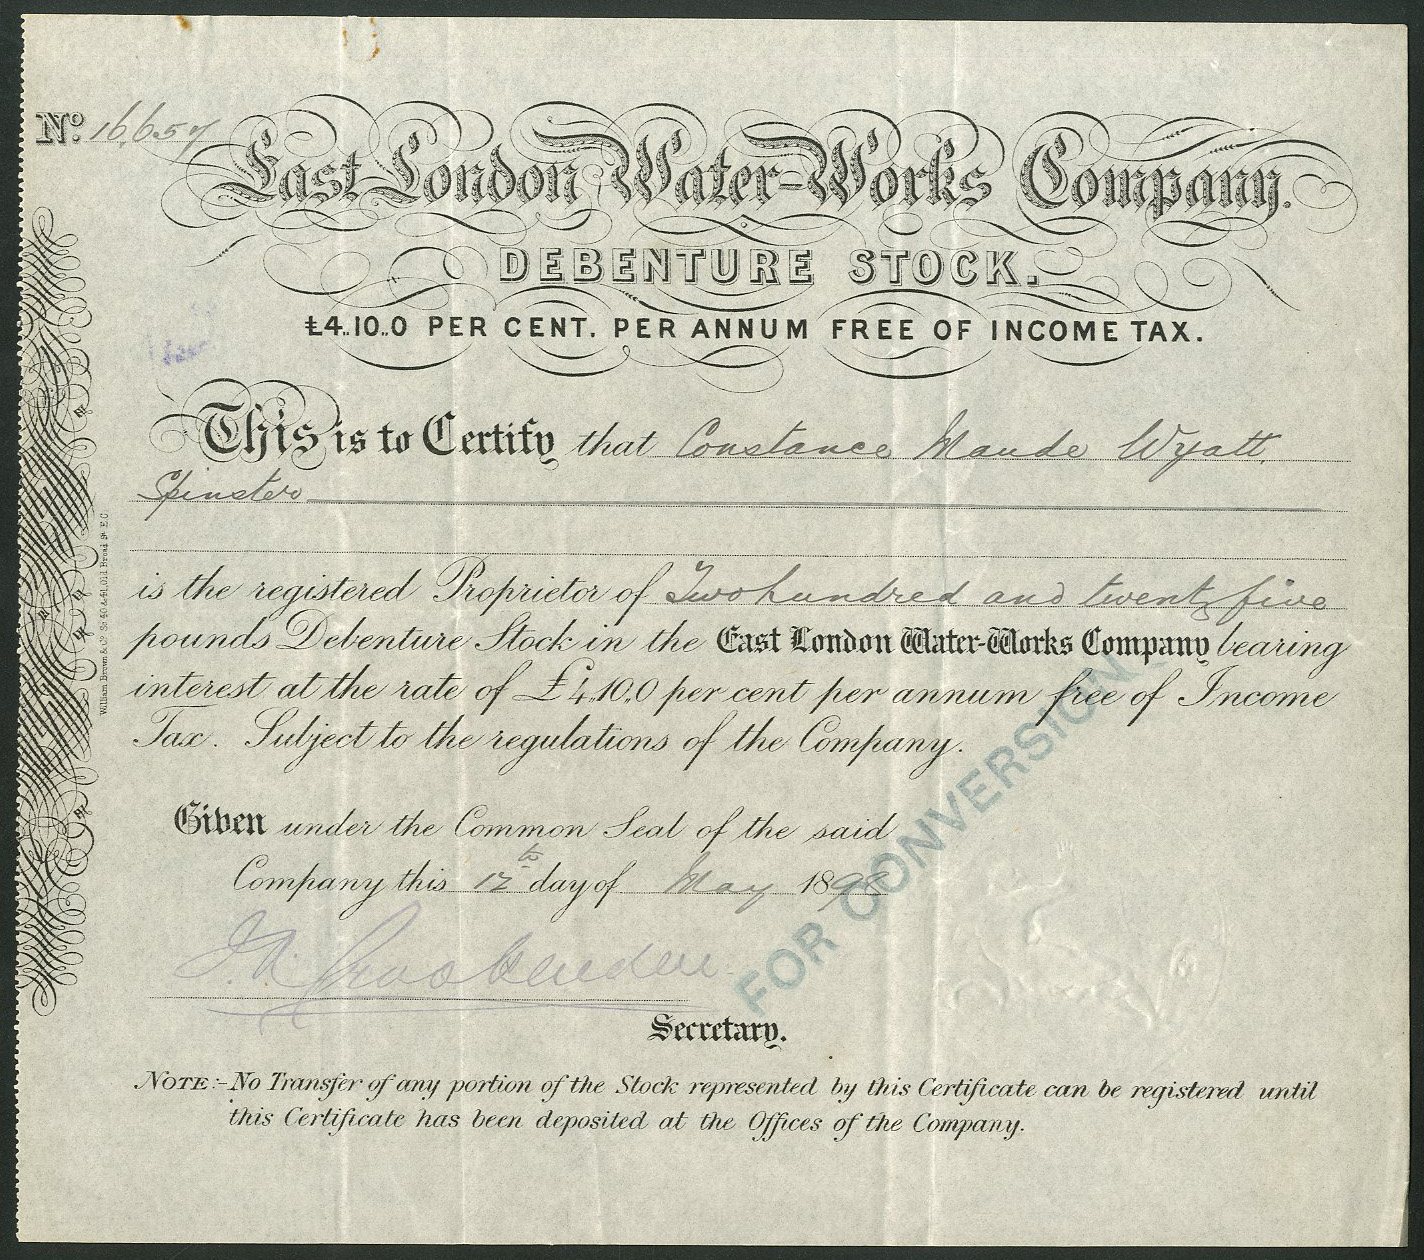 No. 16,657
East London Water-Works Company.
DEBENTURE STOCK.
£4..10..0 PER CENT. PER ANNUM FREE OF INCOME TAX.
This is to Certify that Constance Maude Wyatt
Spinster
is the registered Proprietor of Two hundred and twenty five
pounds Debenture Stock in the East London Water-Works Company bearing
interest at the rate of £4..10..0 per cent per annum free of Income
Tax. Subject to the regulations of the Company.
Given under the Common Seal of the said
Company this 17th day of May 1898
FOR CONVERSION.
Secretary.
NOTE:- No Transfer of any portion of the Stock represented by this Certificate can be registered until
this Certificate has been deposited at the Offices of the Company.
William Brown & Co. Sc. 40 & 41, Old Broad St. E.C.